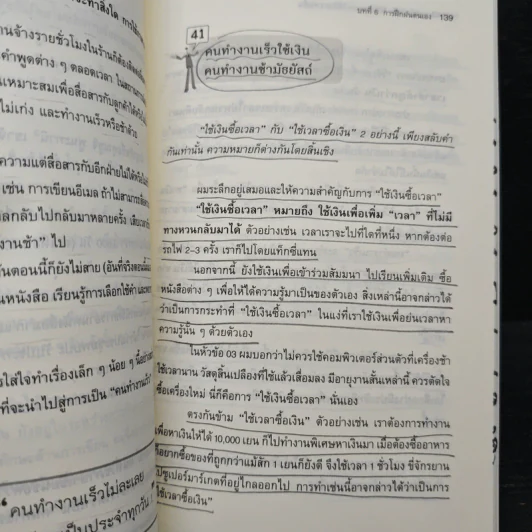 ะทำสิ่งใด
านจ้างรายชั่วโมงในร้านก็ต้อง
คำพูดต่าง ๆ ตลอดเวลา
เหมาะสมเพื่อสื่อสารกับลูกค้า
ไม่เก่ง และทำงานเร็วหรือช้าด้วย
ความแต่สื่อสารกับอีกฝ่ายไม่ได้
เช่น การเขียนอีเมล ถ้าไม่สามารถ
ลกลับไปกลับมาหลายครั้ง
งานช้า” ไป
นตอนนี้ก็ยังไม่สาย
นหนังสือ เรียนรู้การเลือกใช้คำ
ใส่ใจทำเรื่องเล็ก ๆ น้อย ๆ
ที่จะนำไปสู่การเป็น
“คนทำงานเร็วไม่ละเลย
เป็นประจำทุกวัน
บทที่ 6 การฝึกฝนตนเอง 139
41
คนทำงานเร็วใช้เงิน
คนทำงานช้ามัธยัสถ์
“ใช้เงินซื้อเวลา” กับ “ใช้เวลาซื้อเงิน” 2 อย่างนี้ เพียงสลับคำ
กันเท่านั้น ความหมายก็ต่างกันโดยสิ้นเชิง
ผมระลึกอยู่เสมอและให้ความสำคัญกับการ “ใช้เงินซื้อเวลา”
“ใช้เงินซื้อเวลา” หมายถึง ใช้เงินเพื่อเพิ่ม “เวลา” ที่ไม่มี
ทางหวนกลับมาได้ ตัวอย่างเช่น เวลาเราจะไปที่ใดที่หนึ่ง หากต้องต่อ
รถไฟ 2-3 ครั้ง เราก็ไปโดยแท็กซี่แทน
นอกจากนี้ ยังใช้เงินเพื่อเข้าร่วมสัมมนา ไปเรียนเพิ่มเติม ซื้อ
หนังสือต่าง ๆ เพื่อให้ได้ความรู้มาเป็นของตัวเอง สิ่งเหล่านี้อาจกล่าวได้
ว่าเป็นการกระทำที่ “ใช้เงินซื้อเวลา” ในแง่ที่เราใช้เงินเพื่อย่นเวลาหา
ความรู้นั้น ๆ ด้วยตัวเอง
ในหัวข้อ 03 ผมบอกว่าไม่ควรใช้คอมพิวเตอร์ส่วนตัวที่เครื่องช้า
ใช้เวลานาน วัสดุสิ้นเปลืองที่ใช้แล้วเสื่อมลง มีอายุงานสั้นเหล่านี้ ควรตัดใจ
ซื้อเครื่องใหม่ นี่ก็คือการ “ใช้เงินซื้อเวลา” นั่นเอง
ตรงกันข้าม “ใช้เวลาซื้อเงิน” ตัวอย่างเช่น เราต้องการทำงาน
เพื่อหาเงินให้ได้ 10,000 เยน ก็ไปทำงานพิเศษหาเงินมา เมื่อต้องซื้ออาหาร
ก็อยากซื้อของที่ถูกกว่าแม้สัก 1 เยนก็ยังดี จึงใช้เวลา 1 ชั่วโมง ขี่จักรยาน
ไปซูเปอร์มาร์เกตที่อยู่ไกลออกไป การทำเช่นนี้อาจกล่าวได้ว่าเป็นการ
“ใช้เวลาซื้อเงิน”